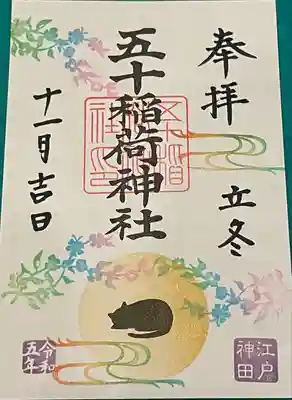 奉拝
立冬
五十稲荷神社
十一月吉日
江戸
神田
令和
五年